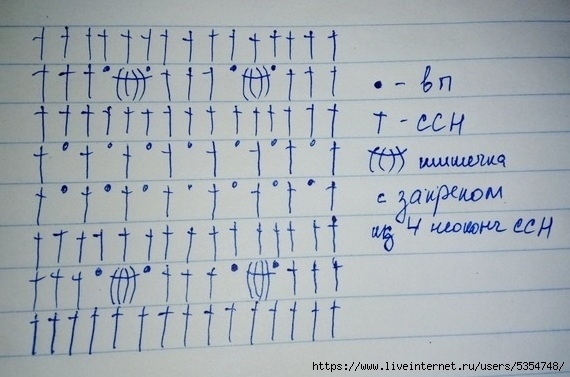 • - вп
† - ССН
шишечка
с закрепом
из 4 неоконч ССН
https://www.liveinternet.ru/users/5354748/